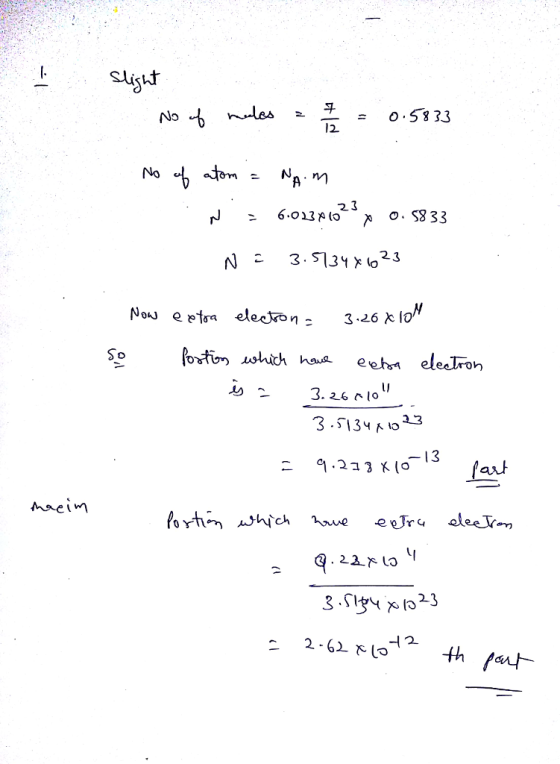 1. Slight
No of moles = 7/12 = 0.5833
No of atom = N_A . m
N = 6.023×10^23 × 0.5833
N = 3.5134×10^23
Now extra electron = 3.26×10^11
So Portion which have extra electron
is = 3.26×10^11
3.5134×10^23
= 9.278×10^-13 Part
maxim
Portion which have extra electron
= 9.22×10^11
3.5134×10^23
= 2.62×10^-12 th part